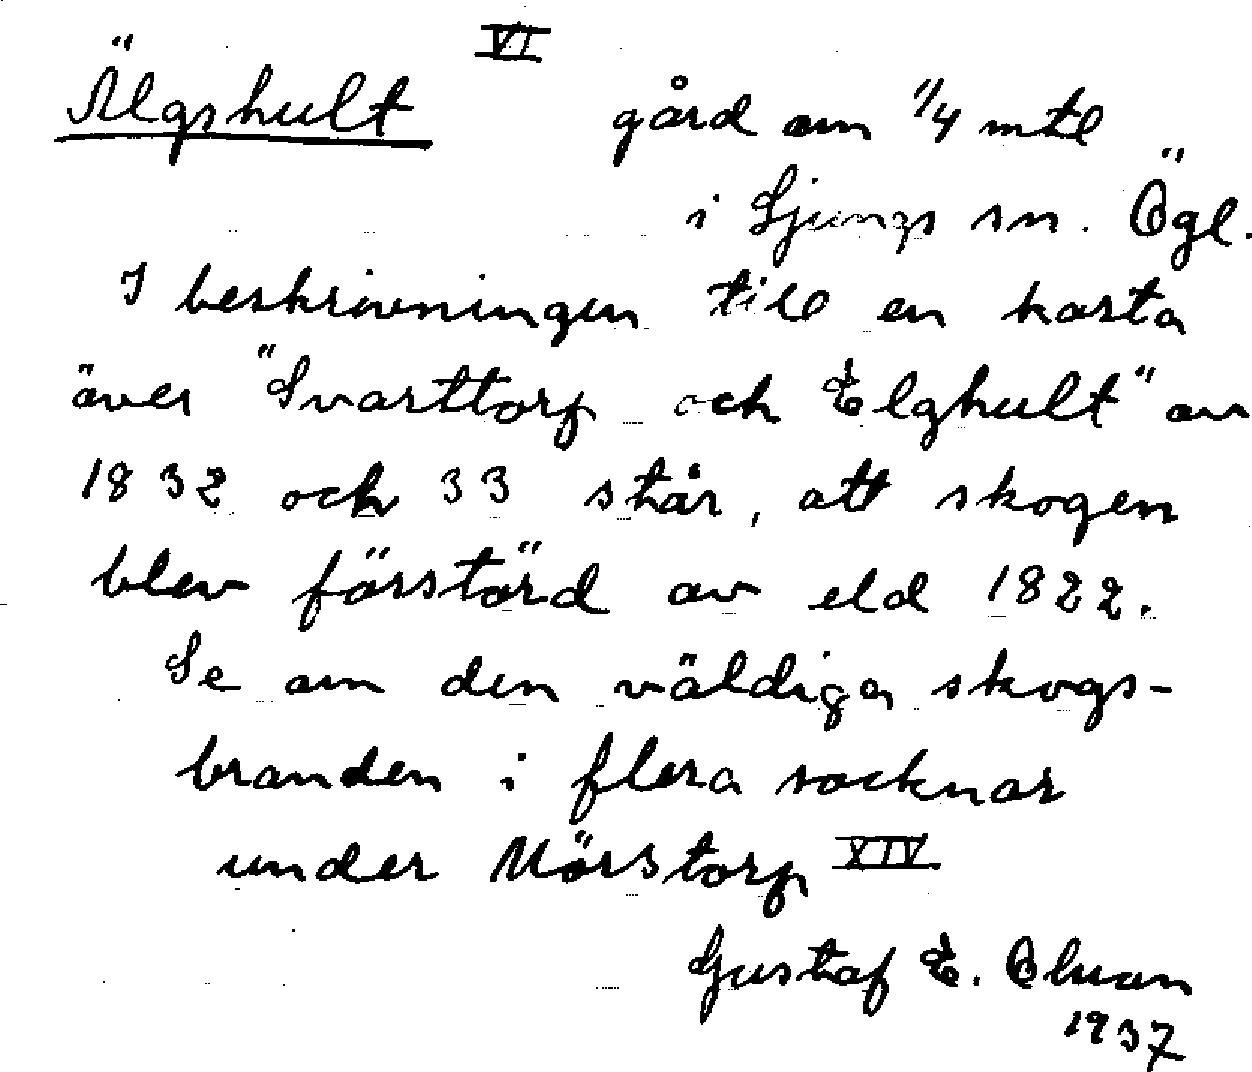 Älgshult VI gård om 1/4 mtl
i Ljungs sn. Ögl.
I beskrivningen till en karta
över "Svarttorp och Elghult" av
1832 och 33 står, att skogen
blev förstörd av eld 1822.
Se om den väldiga skogs-
branden i flera socknar
under Mörstorp XIV
Gustaf E.
1937